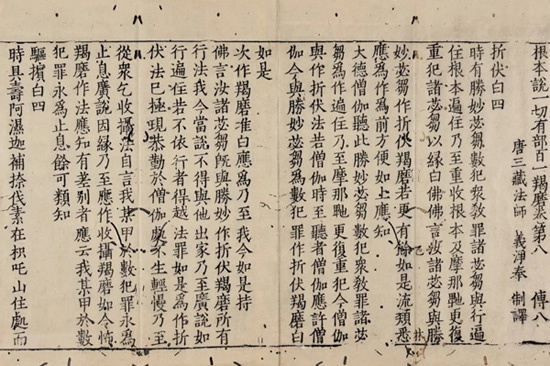 根本說一切有部百一羯磨卷第八 傅八
唐三藏法師 義淨奉 制譯
折伏白四
時有勝妙苾芻數犯衆教罪諸苾芻與行遍
住根本遍住乃至重收根本及摩那𭀚更復
重犯諸苾芻以緣白佛佛言汝諸苾芻與勝
妙苾芻作折伏羯磨若更有餘如是流類悉
應為作為前方便如上應知
大德僧伽聽此勝妙苾芻數犯衆教罪諸苾
芻為作遍住乃至摩那𭀚更復重犯今僧伽
與作折伏法若僧伽時至聽者僧伽應許僧
伽今與勝妙苾芻作折伏羯磨白
如是
次作羯磨准白應為乃至我今如是持
佛言汝諸苾芻既與勝妙作折伏羯磨所有
行法我今當說不得與他出家乃至廣說如
行遍住若不依行者得越法罪如是為作折
伏法已極現恭勤於僧伽處不生輕慢乃至
從衆乞收攝法自言我某甲於數犯罪永為
止息廣說因緣乃至應作收攝羯磨如令怖
羯磨作法應知有差別者應云我某甲於數
犯罪永為止息餘可類知
驅擯白四
時具壽阿濕迦補捺伐素在枳吒山住處而